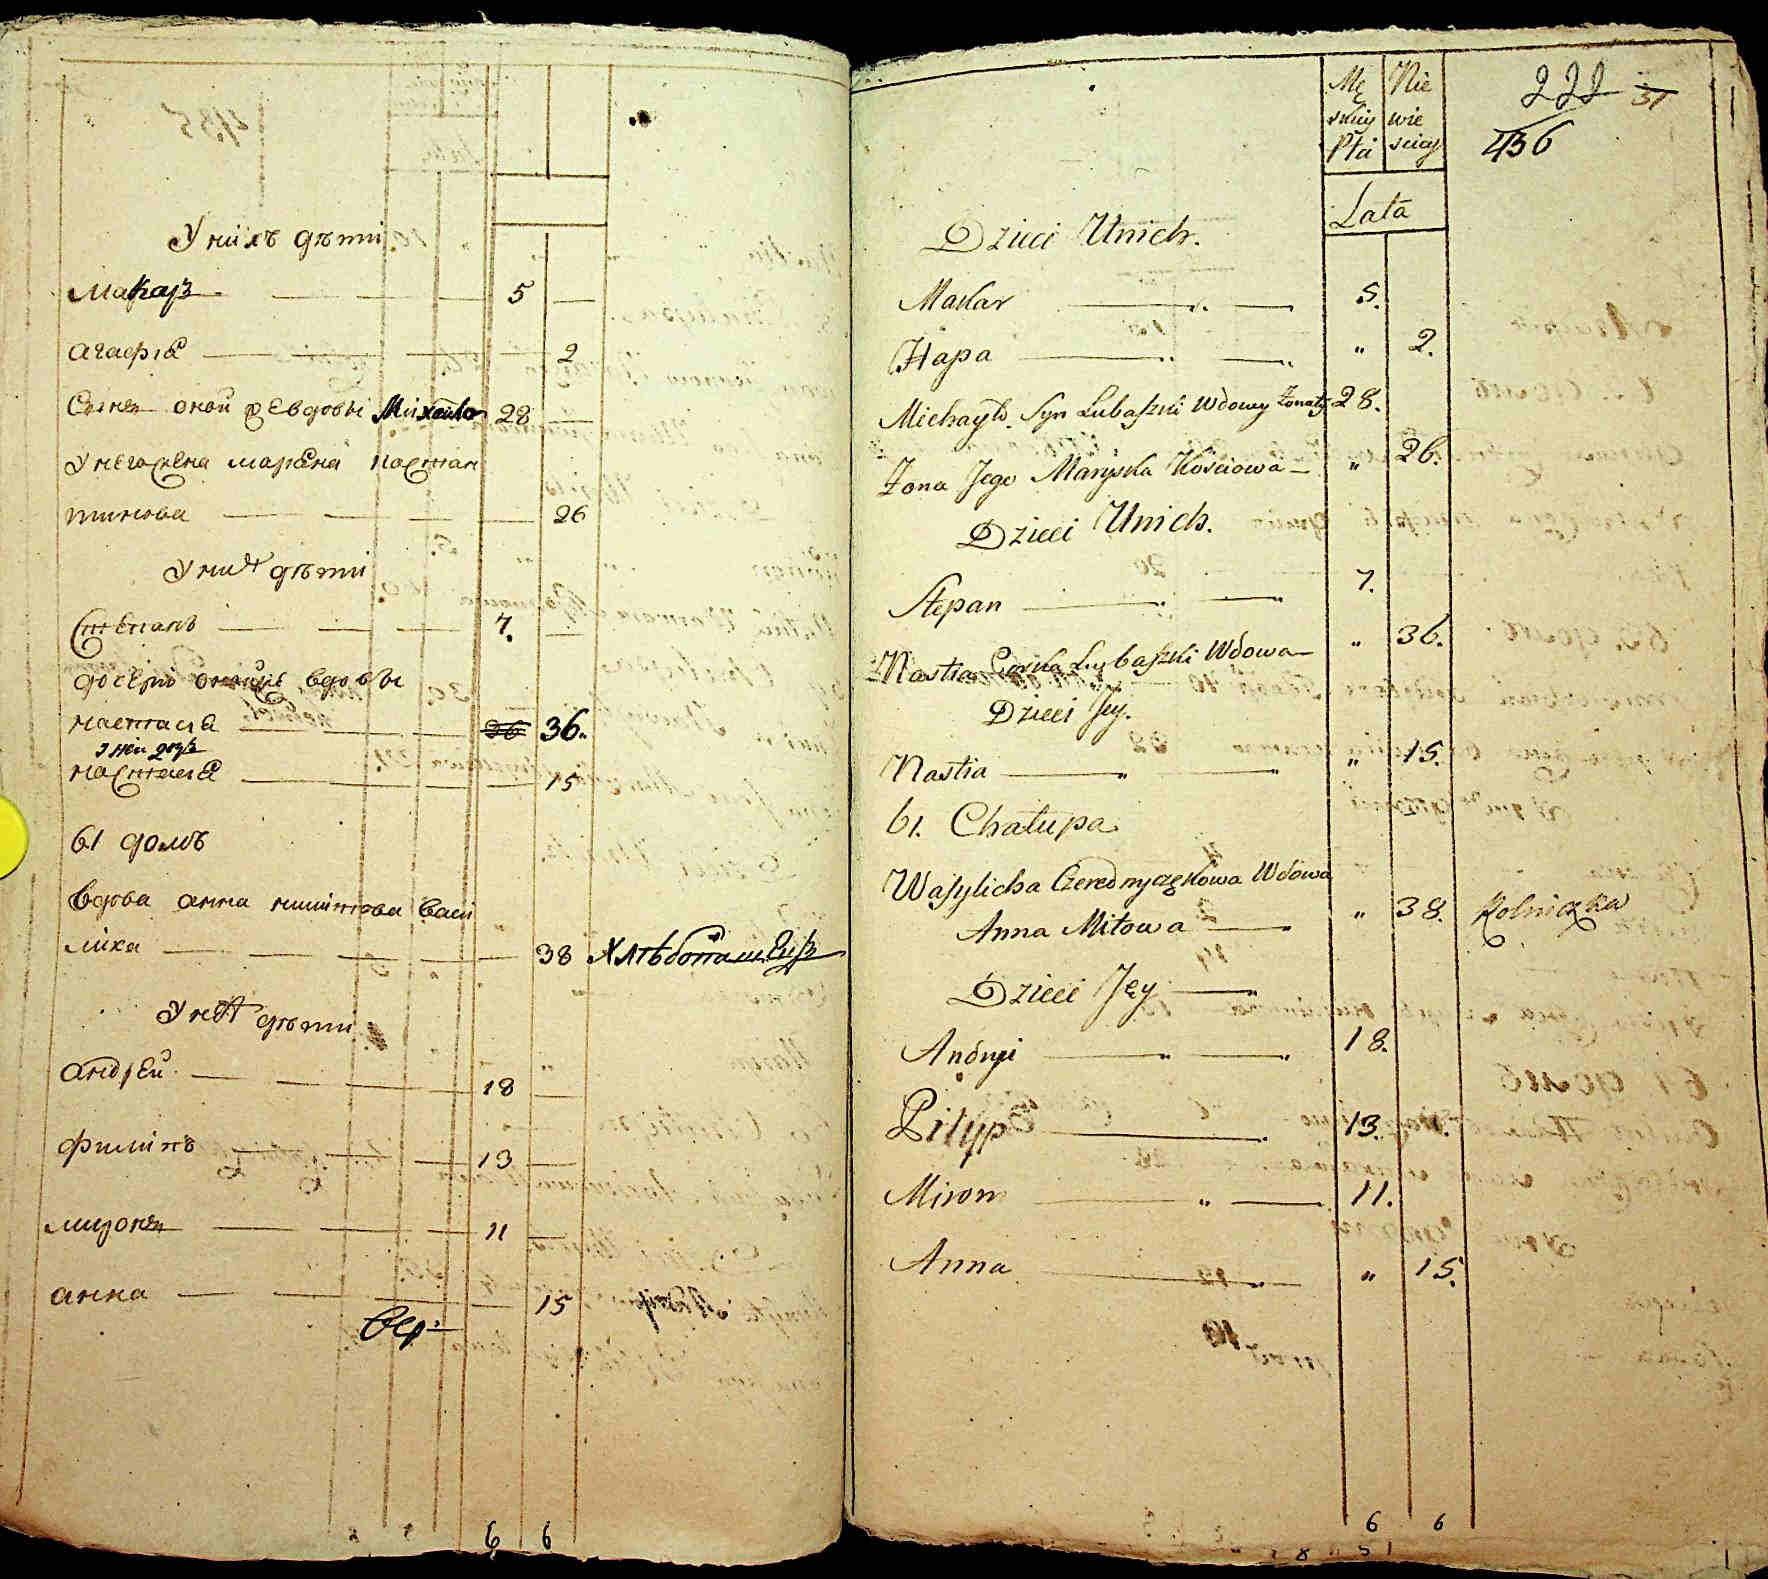 У нихъ дѣти
Макаръ 5
Агафия 2
Сынъ оной вдовы Михайло 28
У него жена Марина Костян
тинова 26
У них дѣти
Степанъ 7.
дочерь оной вдовы
настасья 36 36.
у ней дочь
настасья 15
61 домъ
Вдова анна никитова Васи
лиха 38 Хлѣбопашецъ
У неѣ дѣти
андрей 18
филипъ 13
миронъ 11
анна 15
Вер:
6 6
Mę Nie
skiey wie
Płci sciey
222 31
436
Lata
Dzieci Unich.
Makar 5.
Hapa " 2.
Michayło Syn Lubaszki Wdowy Żonaty 28.
Żona Jego Maryska Kościowa " 26.
Dzieci Unich.
Stepan 7.
Nastia Corka Lubaszki Wdowa " 36.
Dzieci Jey.
Nastia " 15.
61. Chałupa
Wasylicha Czerednyczękowa Wdowa
Anna Mitowa " 38. Rolniczka
Dzieci Jęy
Andryi 18.
Pilyp 13.
Miron 11.
Anna " 15.
6 6